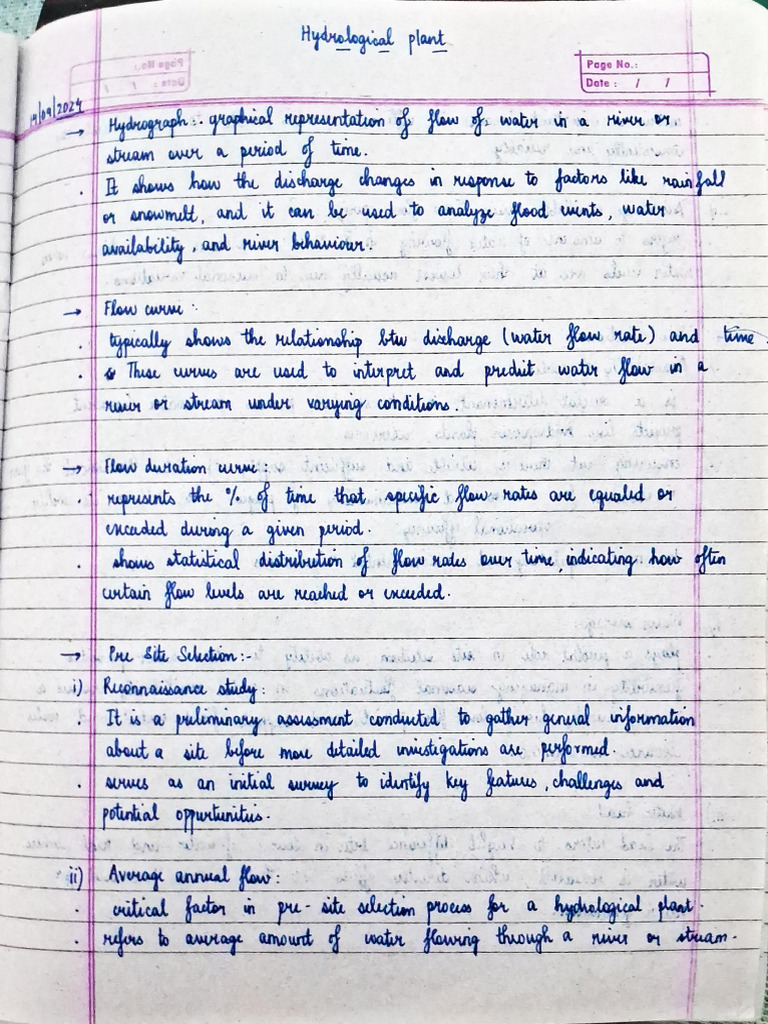 Hydrological plant
Page No.:
Date : / /
14/09/2024
→ Hydrograph :- graphical representation of flow of water in a river or
stream over a period of time.
. It shows how the discharge changes in response to factors like rainfall
or snowmelt, and it can be used to analyze flood events, water
availability, and river behaviour.
→ Flow curve :
. typically shows the relationship btw discharge (water flow rate) and time
. These curves are used to interpret and predict water flow in a
river or stream under varying conditions.
→ Flow duration curve :
. represents the % of time that specific flow rates are equaled or
exceeded during a given period.
. shows statistical distribution of flow rates over time, indicating how often
certain flow levels are reached or exceeded.
→ Pre Site Selection :-
i) Reconnaissance study :
. It is a preliminary assessment conducted to gather general information
about a site before more detailed investigations are performed.
. serves as an initial survey to identify key features, challenges and
potential oppurtunities.
ii) Average annual flow :
. critical factor in pre-site selection process for a hydrological plant.
. refers to average amount of water flowing through a river or stream.